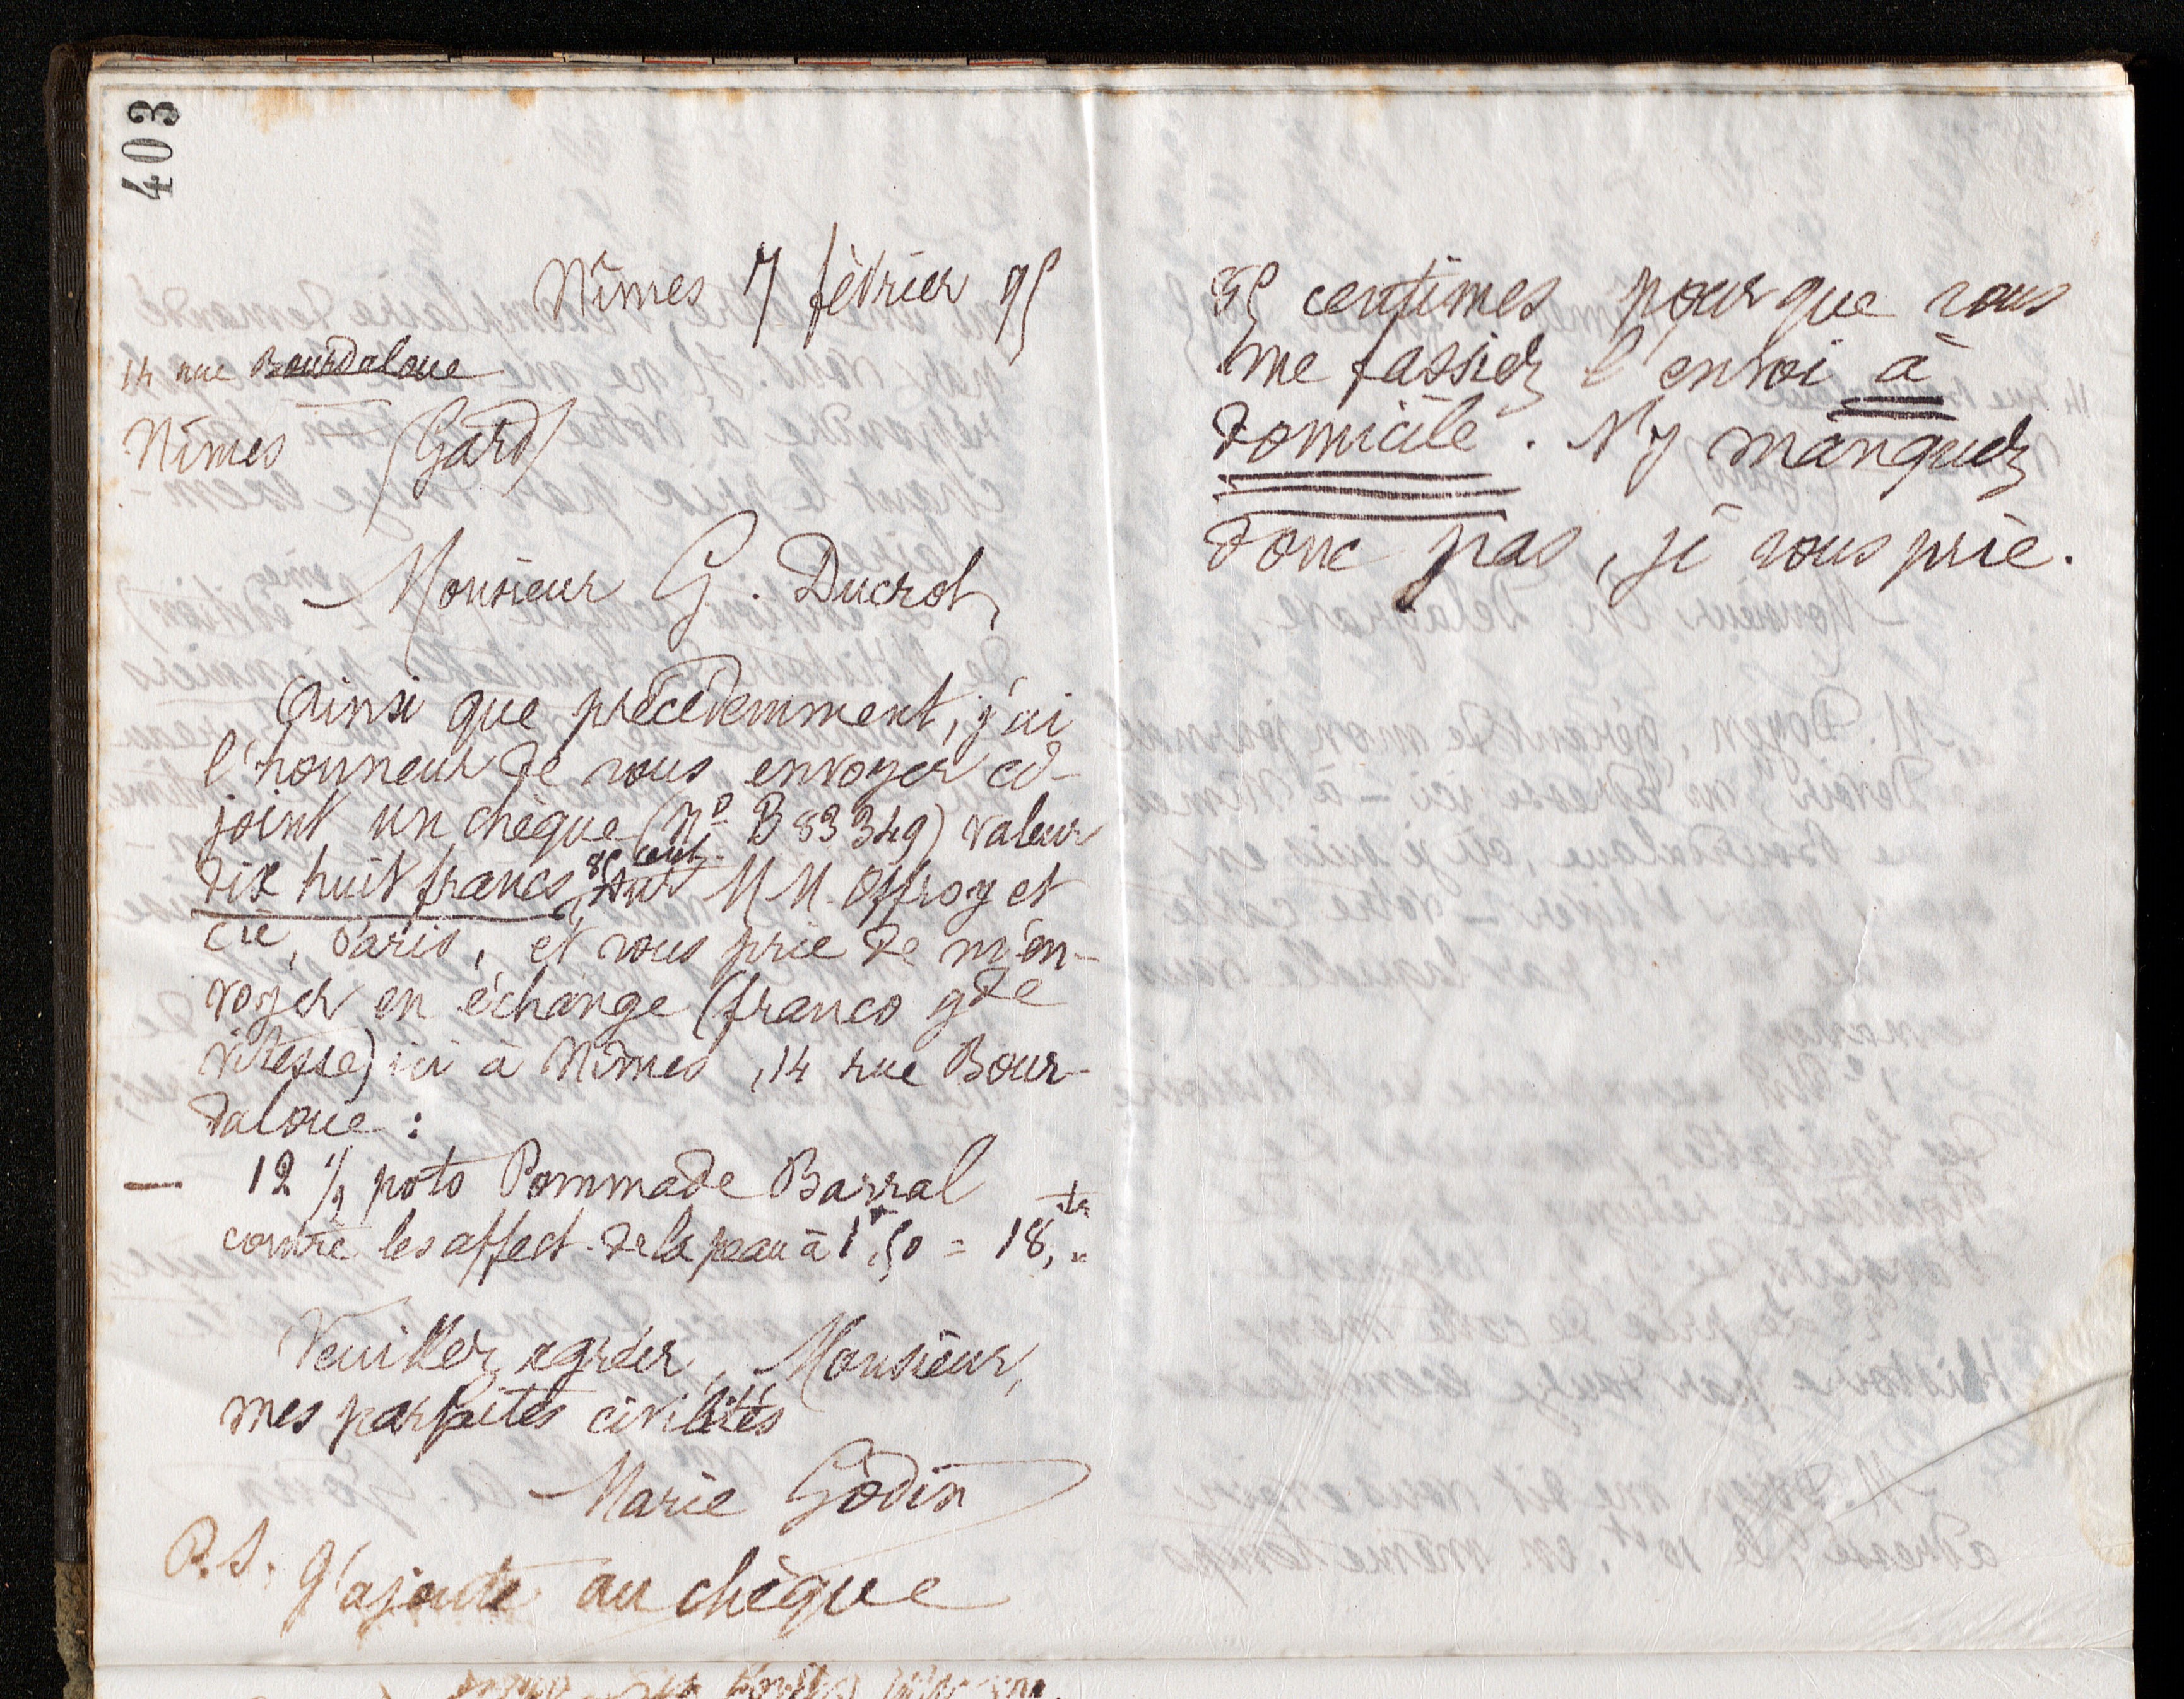 403
Nîmes 7 février 95
14 rue Bourdaloue
Nîmes (Gard)
Monsieur G. Ducrot,
Ainsi que précédemment, j'ai
l'honneur de vous envoyer ci-
joint un chèque (No B 83349) valeur
dix huit francs 85 cent. sur M M. Offroy et
cie, Paris, et vous prie de m'en-
voyer en échange (franco gde
vitesse) ici à Nîmes, 14 rue Bour-
daloue :
— 12 1/2 pots Pommade Barral
contre les affect. de la peau à 1f,50 = 18,"
Veuillez agréer, Monsieur,
mes parfaites civilités
Marie Godin
P.S. J'ajoute au chèque
85 centimes pour que vous
me fassiez l'envoi à
domicile. N'y manquez
donc pas, je vous prie.